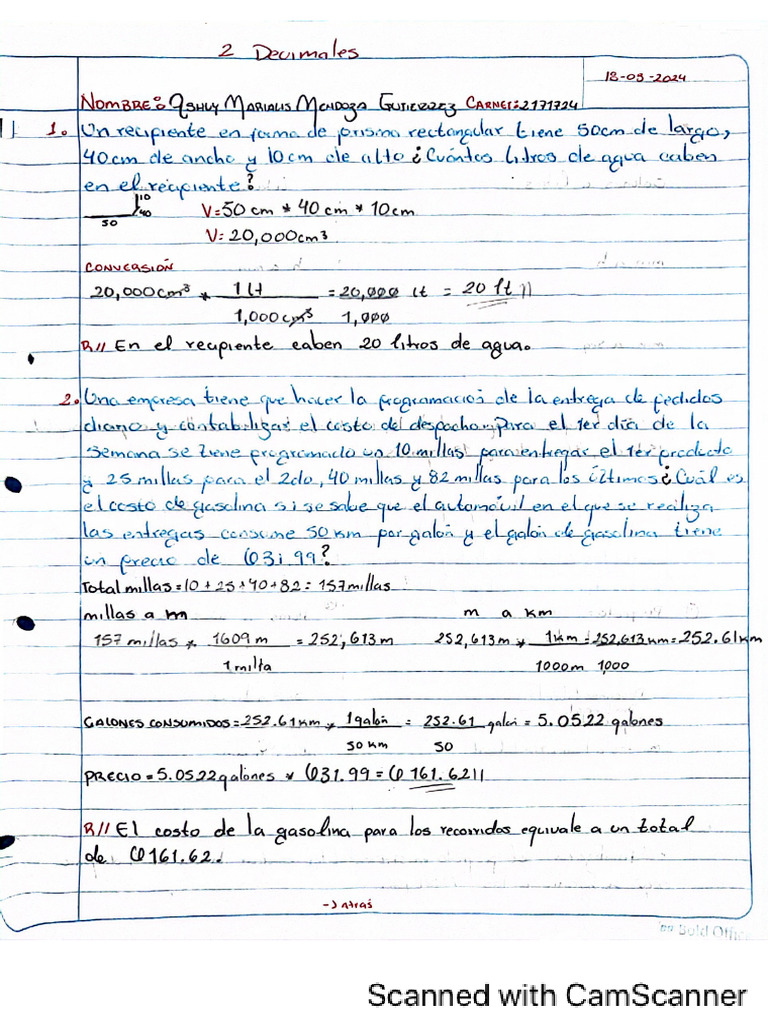 2 Decimales
18-05-2024
NOMBRE: Ashly Marialis Mendoza Gutierrez CARNET: 2171724
1. Un recipiente en forma de prisma rectangular tiene 50cm de largo,
40cm de ancho y 10cm de alto ¿Cuántos litros de agua caben
en el recipiente?
10
40
50
V=50 cm * 40 cm * 10cm
V= 20,000cm³
CONVERSIÓN
20,000cm³ * 1 lt = 20,000 lt = 20 lt //
1,000 cm³ 1,000
R// En el recipiente caben 20 litros de agua.
2. Una empresa tiene que hacer la programación de la entrega de pedidos
diario y contabilizar el costo del despacho. Para el 1er día de la
semana se tiene programado un 10 millas para entregar el 1er producto
y 25 millas para el 2do, 40 millas y 82 millas para los últimos ¿Cuál es
el costo de gasolina si se sabe que el automóvil en el que se realiza
las entregas consume 50 km por galón y el galón de gasolina tiene
un precio de Q31.99?
Total millas = 10 + 25 + 40 + 82 = 157 millas
millas a m m a km
157 millas * 1609 m = 252,613 m 252,613 m * 1km = 252,613 km = 252.61 km
1 milla 1000m 1,000
GALONES CONSUMIDOS = 252.61 km * 1 galón = 252.61 galón = 5.0522 galones
50 km 50
PRECIO = 5.0522 galones * Q31.99 = Q 161.62 //
R// El costo de la gasolina para los recorridos equivale a un total
de Q161.62.
-> atrás
Scanned with CamScanner